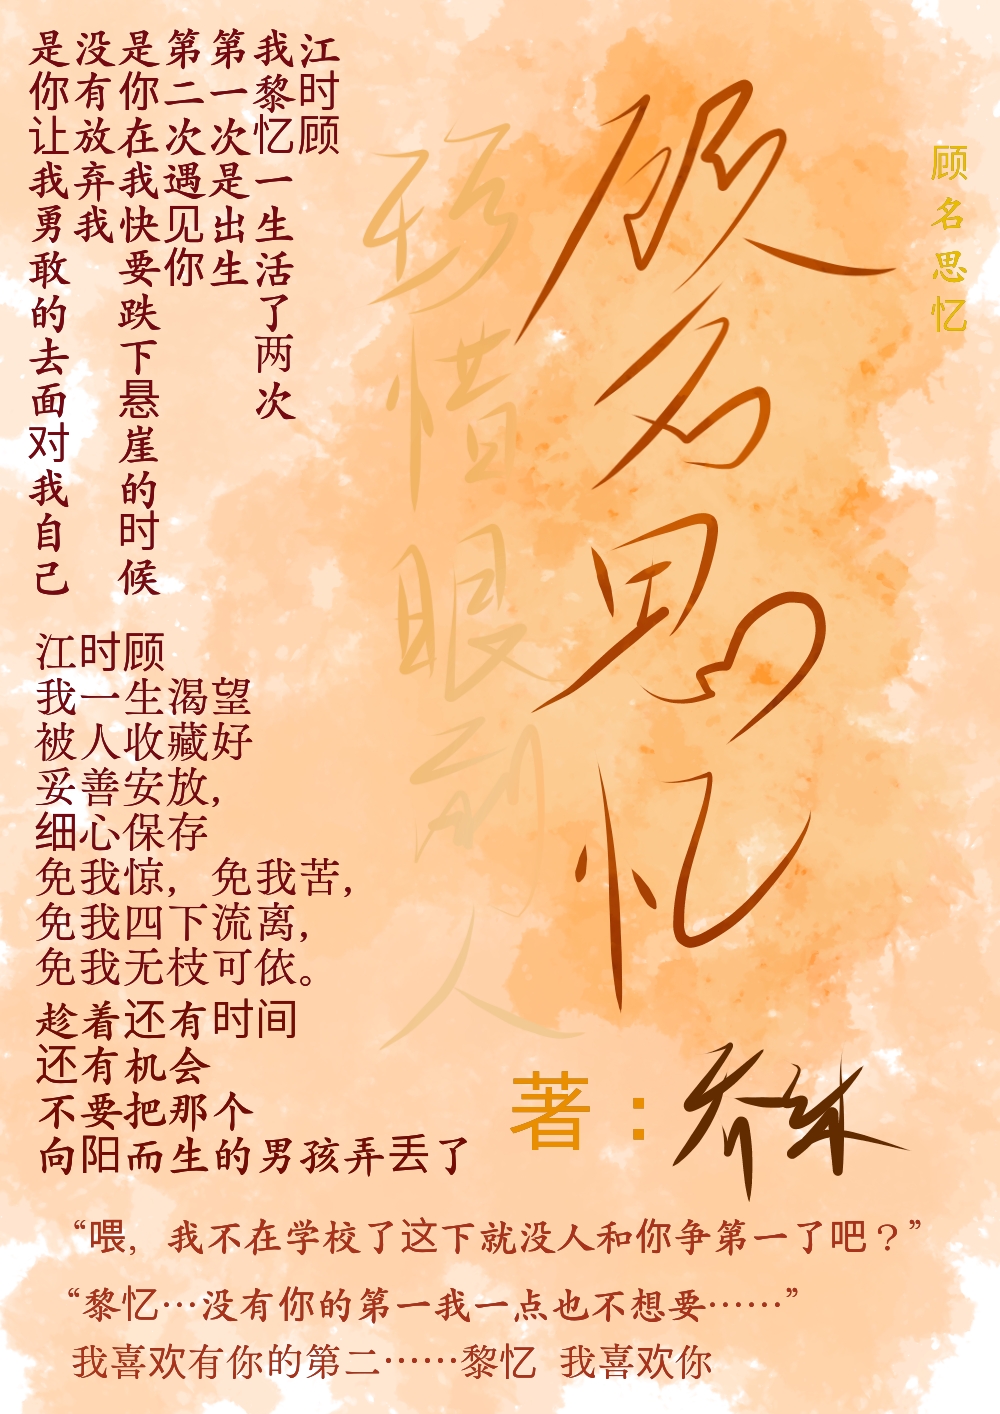 顾名思忆
顾名思忆
珍惜眼前人
江时顾
我黎忆一生活了两次
第一次是出生
第二次遇见你
是你在我快要跌下悬崖的时候
没有放弃我
是你让我勇敢的去面对我自己
江时顾
我一生渴望
被人收藏好
妥善安放，
细心保存
免我惊，免我苦，
免我四下流离，
免我无枝可依。
趁着还有时间
还有机会
不要把那个
向阳而生的男孩弄丢了
著：乔
“喂，我不在学校了这下就没人和你争第一了吧？”
“黎忆…没有你的第一我一点也不想要……”
我喜欢有你的第二……黎忆 我喜欢你